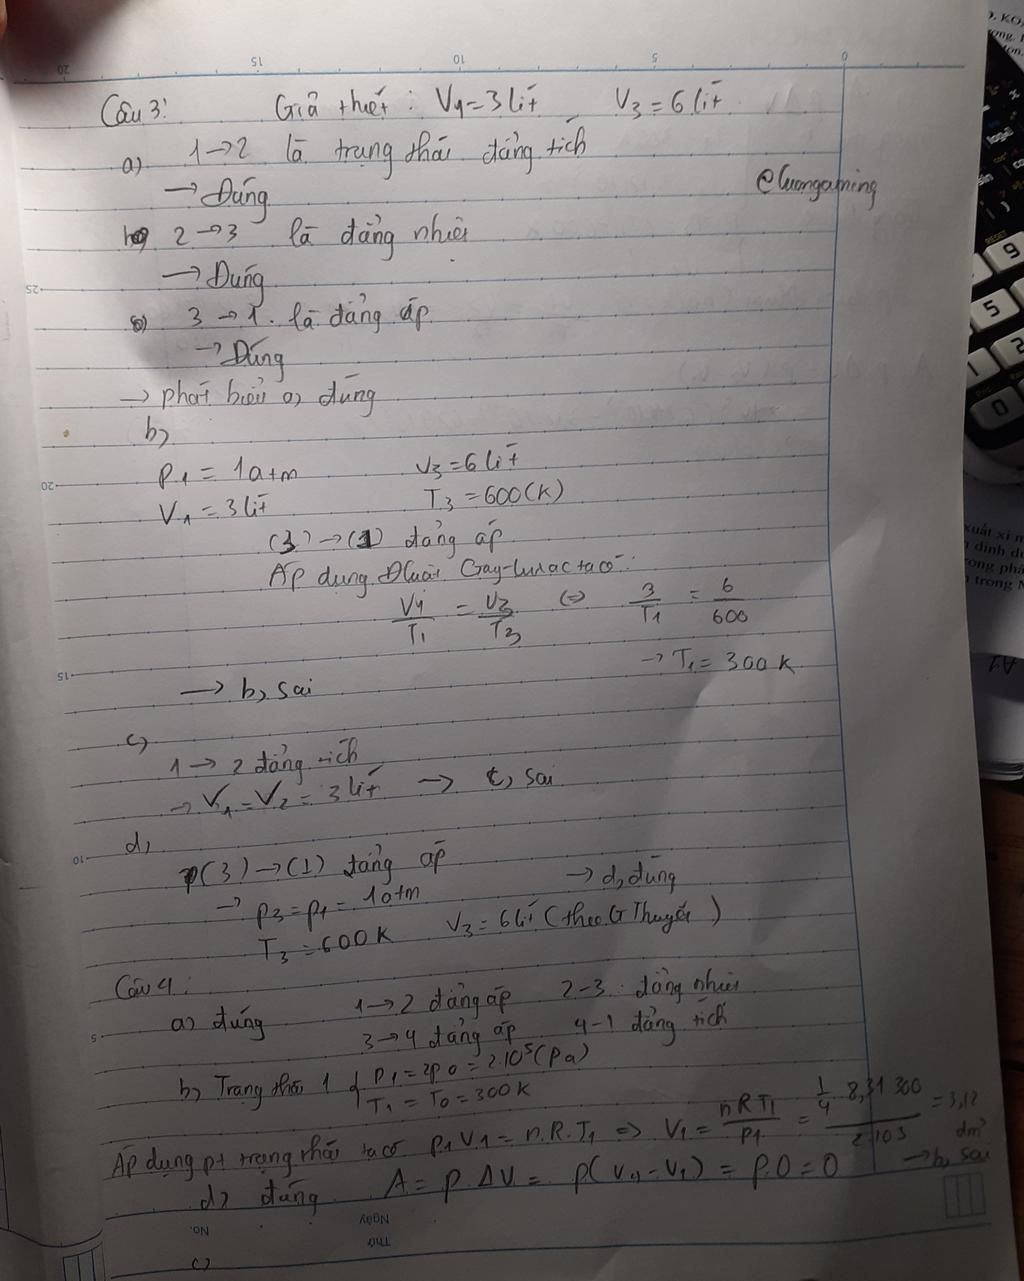 Câu 3: Giả thiết: V1 = 3 lít V3 = 6 lít
a) 1→2 là trạng thái đẳng tích
→ Đúng
@Cuongaming
2→3 là đẳng nhiệt
→ Đúng
3→1. là đẳng áp
→ Đúng
→ phát biểu a, đúng
b,
P1 = 1atm V3 = 6 lít
V1 = 3 lít T3 = 600(K)
(3)→(1) đẳng áp
Áp dụng Đluật Gay-lusac ta có:
V1/T1 = V3/T3 ⇔ 3/T1 = 6/600
→ T1 = 300K
→ b, sai
c,
1→2 đẳng tích
→ V1 = V2 = 3 lít → c, sai
d,
(3)→(1) đẳng áp
→ P3 = P1 = 1atm → d, đúng
T3 = 600K V3 = 6 lít (theo GThuyết)
Câu 4:
a) đúng 1→2 đẳng áp 2-3: đẳng nhiệt
3→4 đẳng áp 4-1 đẳng tích
b, Trạng thái 1 { P1 = 2P0 = 2.10^5(Pa)
T1 = T0 = 300K
Áp dụng pt trạng thái ta có P1V1 = n.R.T1 ⇒ V1 = nRT1/P1 = 1/4 8,31 300/2 103 = 3,12 dm³
→ b, sai
d, đúng A = p.ΔV = p(V4 - V1) = P.0 = 0
c)
Thứ
Ngày
No.
20
15
10
5
0
25
20
15
10
5
RESET
9
5
1
2
0
xuất xi m